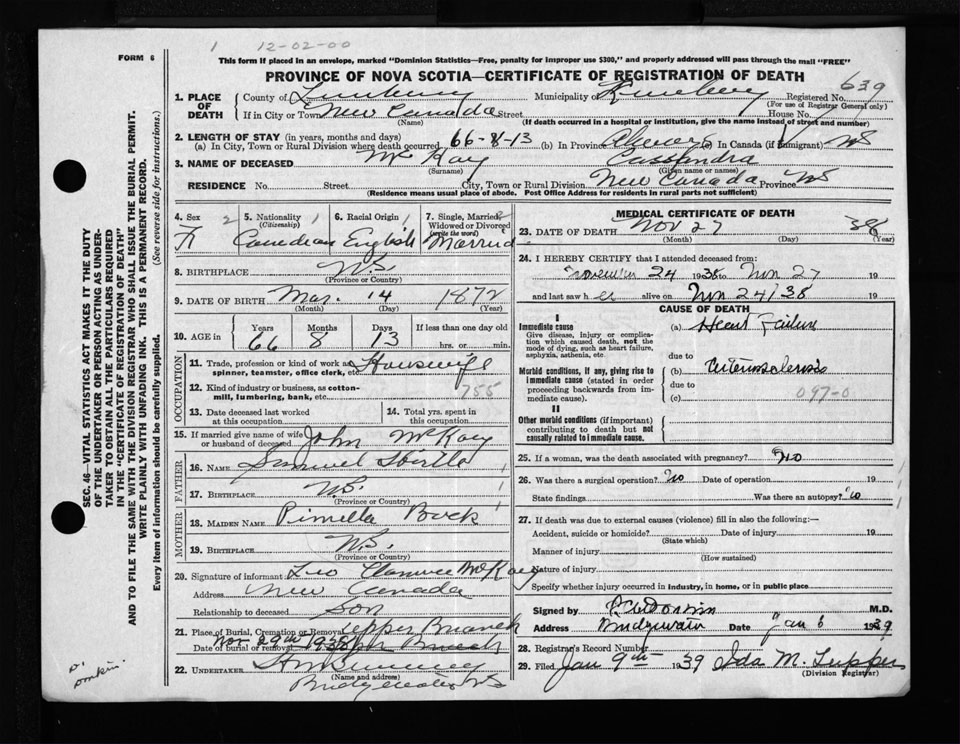 1 12-02-00
FORM 6
This form if placed in an envelope, marked "Dominion Statistics—Free, penalty for improper use $300," and properly addressed will pass through the mail "FREE"
PROVINCE OF NOVA SCOTIA—CERTIFICATE OF REGISTRATION OF DEATH
639
1. PLACE OF DEATH
County of Lunenburg Municipality of Lunenburg Registered No.
(For use of Registrar General only)
If in City or Town New Canada Street House No.
(Name) (If death occurred in a hospital or institution, give the name instead of street and number)
2. LENGTH OF STAY (in years, months and days)
(a) In City, Town or Rural Division where death occurred 66-8-13 (b) In Province Always (c) In Canada (if immigrant) NS
3. NAME OF DECEASED McKay Cassandra
(Surname) (Given name or names)
RESIDENCE No. Street City, Town or Rural Division New Canada Province NS
(Residence means usual place of abode. Post Office Address for residents in rural parts not sufficient)
SEC. 46—VITAL STATISTICS ACT MAKES IT THE DUTY
OF THE UNDERTAKER OR PERSON ACTING AS UNDER-
TAKER TO OBTAIN ALL THE PARTICULARS REQUIRED
IN THE "CERTIFICATE OF REGISTRATION OF DEATH"
AND TO FILE THE SAME WITH THE DIVISION REGISTRAR WHO SHALL ISSUE THE BURIAL PERMIT.
WRITE PLAINLY WITH UNFADING INK. THIS IS A PERMANENT RECORD.
Every item of information should be carefully supplied. (See reverse side for instructions.)
4. Sex 2 5. Nationality 1 6. Racial Origin 1 7. Single, Married, 2
(Citizenship) Widowed or Divorced
(write the word)
F Canadian English Married
8. BIRTHPLACE N.S.
(Province or Country)
9. DATE OF BIRTH Mar. 14 1872
(Month) (Day) (Year)
10. AGE in Years Months Days If less than one day old
66 8 13 hrs. or min.
OCCUPATION
11. Trade, profession or kind of work as Housewife
spinner, teamster, office clerk, etc.
12. Kind of industry or business, as cotton-
mill, lumbering, bank, etc. 755
13. Date deceased last worked
at this occupation
14. Total yrs. spent in
this occupation
15. If married give name of wife
or husband of deceased John McKay
FATHER
16. NAME Samuel
17. BIRTHPLACE N.S. 1
(Province or Country)
MOTHER
18. MAIDEN NAME
19. BIRTHPLACE N.S. 1
(Province or Country)
20. Signature of informant Leo Clarence McKay
Address New Canada
Relationship to deceased Son
21. Place of Burial, Cremation or Removal Branch
Date of burial or removal Nov 29th 1938 Branch
22. UNDERTAKER
(Name and address)
Bridgewater NS
MEDICAL CERTIFICATE OF DEATH
23. DATE OF DEATH Nov 27 38
(Month) (Day) (Year)
24. I HEREBY CERTIFY that I attended deceased from:
November 24 1938 to Nov 27 19
and last saw h er alive on Nov 24/38 19
CAUSE OF DEATH
I
Immediate cause (a) Heart Failure
Give disease, injury or complica-
tion which caused death, not the
mode of dying, such as heart failure,
asphyxia, asthenia, etc.
due to
Morbid conditions, if any, giving rise to
immediate cause (stated in order
proceeding backwards from im-
mediate cause).
(b) Arteriosclerosis
due to
(c) 097-0
II
Other morbid conditions (if important)
contributing to death but not
causally related to immediate cause.
25. If a woman, was the death associated with pregnancy? No
26. Was there a surgical operation? No Date of operation 19
State findings Was there an autopsy? No
27. If death was due to external causes (violence) fill in also the following:—
Accident, suicide or homicide? Date of injury 19
(State which)
Manner of injury
(How sustained)
Nature of injury
Specify whether injury occurred in industry, in home, or in public place
Signed by M.D.
Address Bridgewater Date Jan 6 1939
28. Registrar's Record Number
29. Filed Jan 9th 1939 Ida M. Tupper
(Division Registrar)